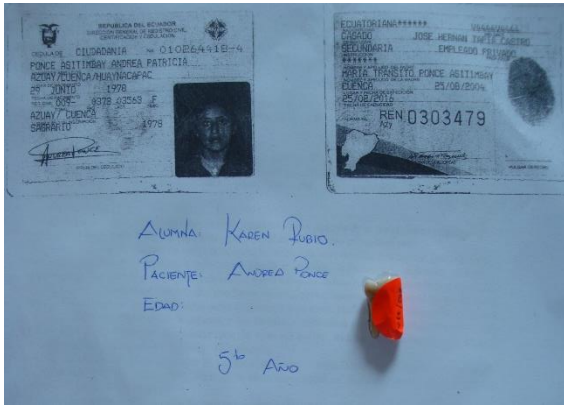 REPUBLICA DEL ECUADOR
DIRECCION GENERAL DE REGISTRO CIVIL
CIUDADANIA
PONCE ASITIMBAY ANDREA PATRICIA
AZUAY/CUENCA/HUAYNACAPAC
1978
0378 03563 F
AZUAY/ CUENCA
SAGRARIO 1978
ECUATORIANA******
CASADO JOSE HERNAN
SECUNDARIA EMPLEADO PRIVADO
MARIA TRANSITO PONCE ASITIMBAY
CUENCA 25/08/2004
25/08/2016
REN 0303479
Azy
ALUMNA: KAREN RUBIO.
PACIENTE: ANDREA PONCE
EDAD:
5to AÑO